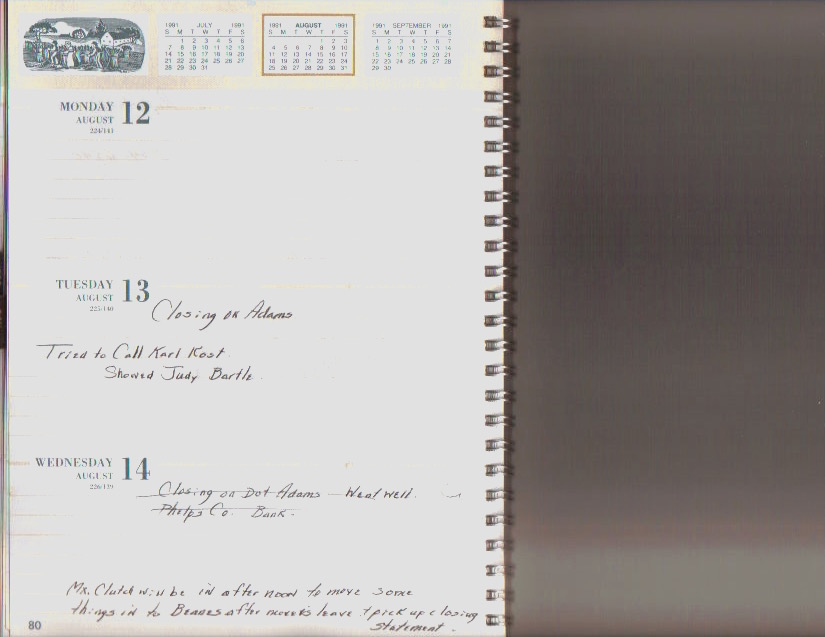 1991 JULY 1991
S M T W T F S
1 2 3 4 5 6
7 8 9 10 11 12 13
14 15 16 17 18 19 20
21 22 23 24 25 26 27
28 29 30 31
1991 AUGUST 1991
S M T W T F S
1 2 3
4 5 6 7 8 9 10
11 12 13 14 15 16 17
18 19 20 21 22 23 24
25 26 27 28 29 30 31
1991 SEPTEMBER 1991
S M T W T F S
1 2 3 4 5 6 7
8 9 10 11 12 13 14
15 16 17 18 19 20 21
22 23 24 25 26 27 28
29 30
MONDAY 12
AUGUST
224/141
TUESDAY 13
AUGUST
225/140
Closing on Adams
Tried to Call Karl Kost
Showed Judy Bartle
WEDNESDAY 14
AUGUST
226/139
Closing on Dot Adams - Went well.
Phelps Co. Bank -
Mr. Clutch will be in after noon to move some
things in to after movers leave + pick up closing
Statement.
80